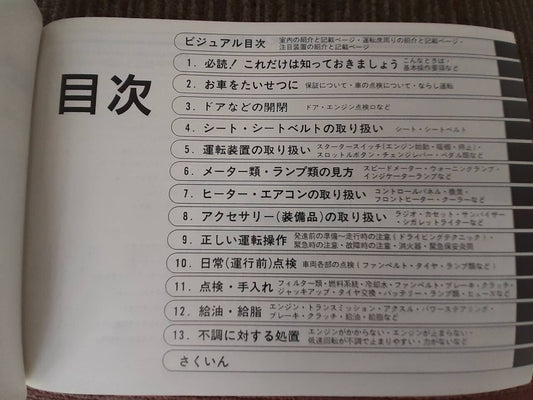 目次
ビジュアル目次 室内の紹介と記載ページ・運転席周りの紹介と記載ページ・
注目装置の紹介と記載ページ
1. 必読! これだけは知っておきましょう こんなときは・
基本操作要領など
2. お車をたいせつに 保証について・車の点検について・ならし運転
3. ドアなどの開閉 ドア・エンジン点検口など
4. シート・シートベルトの取り扱い シート・シートベルト
5. 運転装置の取り扱い スタータースイッチ(エンジン始動・暖機・停止)・
スロットルボタン・チェンジレバー・ペダル類など
6. メーター類・ランプ類の見方 スピードメーター・ウォーニングランプ・
インジケーターランプなど
7. ヒーター・エアコンの取り扱い コントロールパネル・換気・
フロントヒーター・クーラーなど
8. アクセサリー(装備品)の取り扱い ラジオ・カセット・サンバイザー
・シガレットライターなど
9. 正しい運転操作 発進前の準備〜走行時の注意(ドライビングテクニック)・
緊急時の注意・故障時の注意・消火器・緊急保安炎筒
10. 日常(運行前)点検 車両各部の点検(ファンベルト・タイヤ・ランプ類など)
11. 点検・手入れ フィルター類・燃料系統・冷却水・ファンベルト・ブレーキ・クラッチ・
ジャッキアップ・タイヤ交換・バッテリー・ランプ類・ヒューズなど
12. 給油・給脂 エンジン・トランスミッション・アクスル・パワーステアリング・
ブレーキ・クラッチ・給油・給脂など
13. 不調に対する処置 エンジンがかからない・エンジンが止まらない・
低速回転が不調で止まりやすい・力がないなど
さくいん